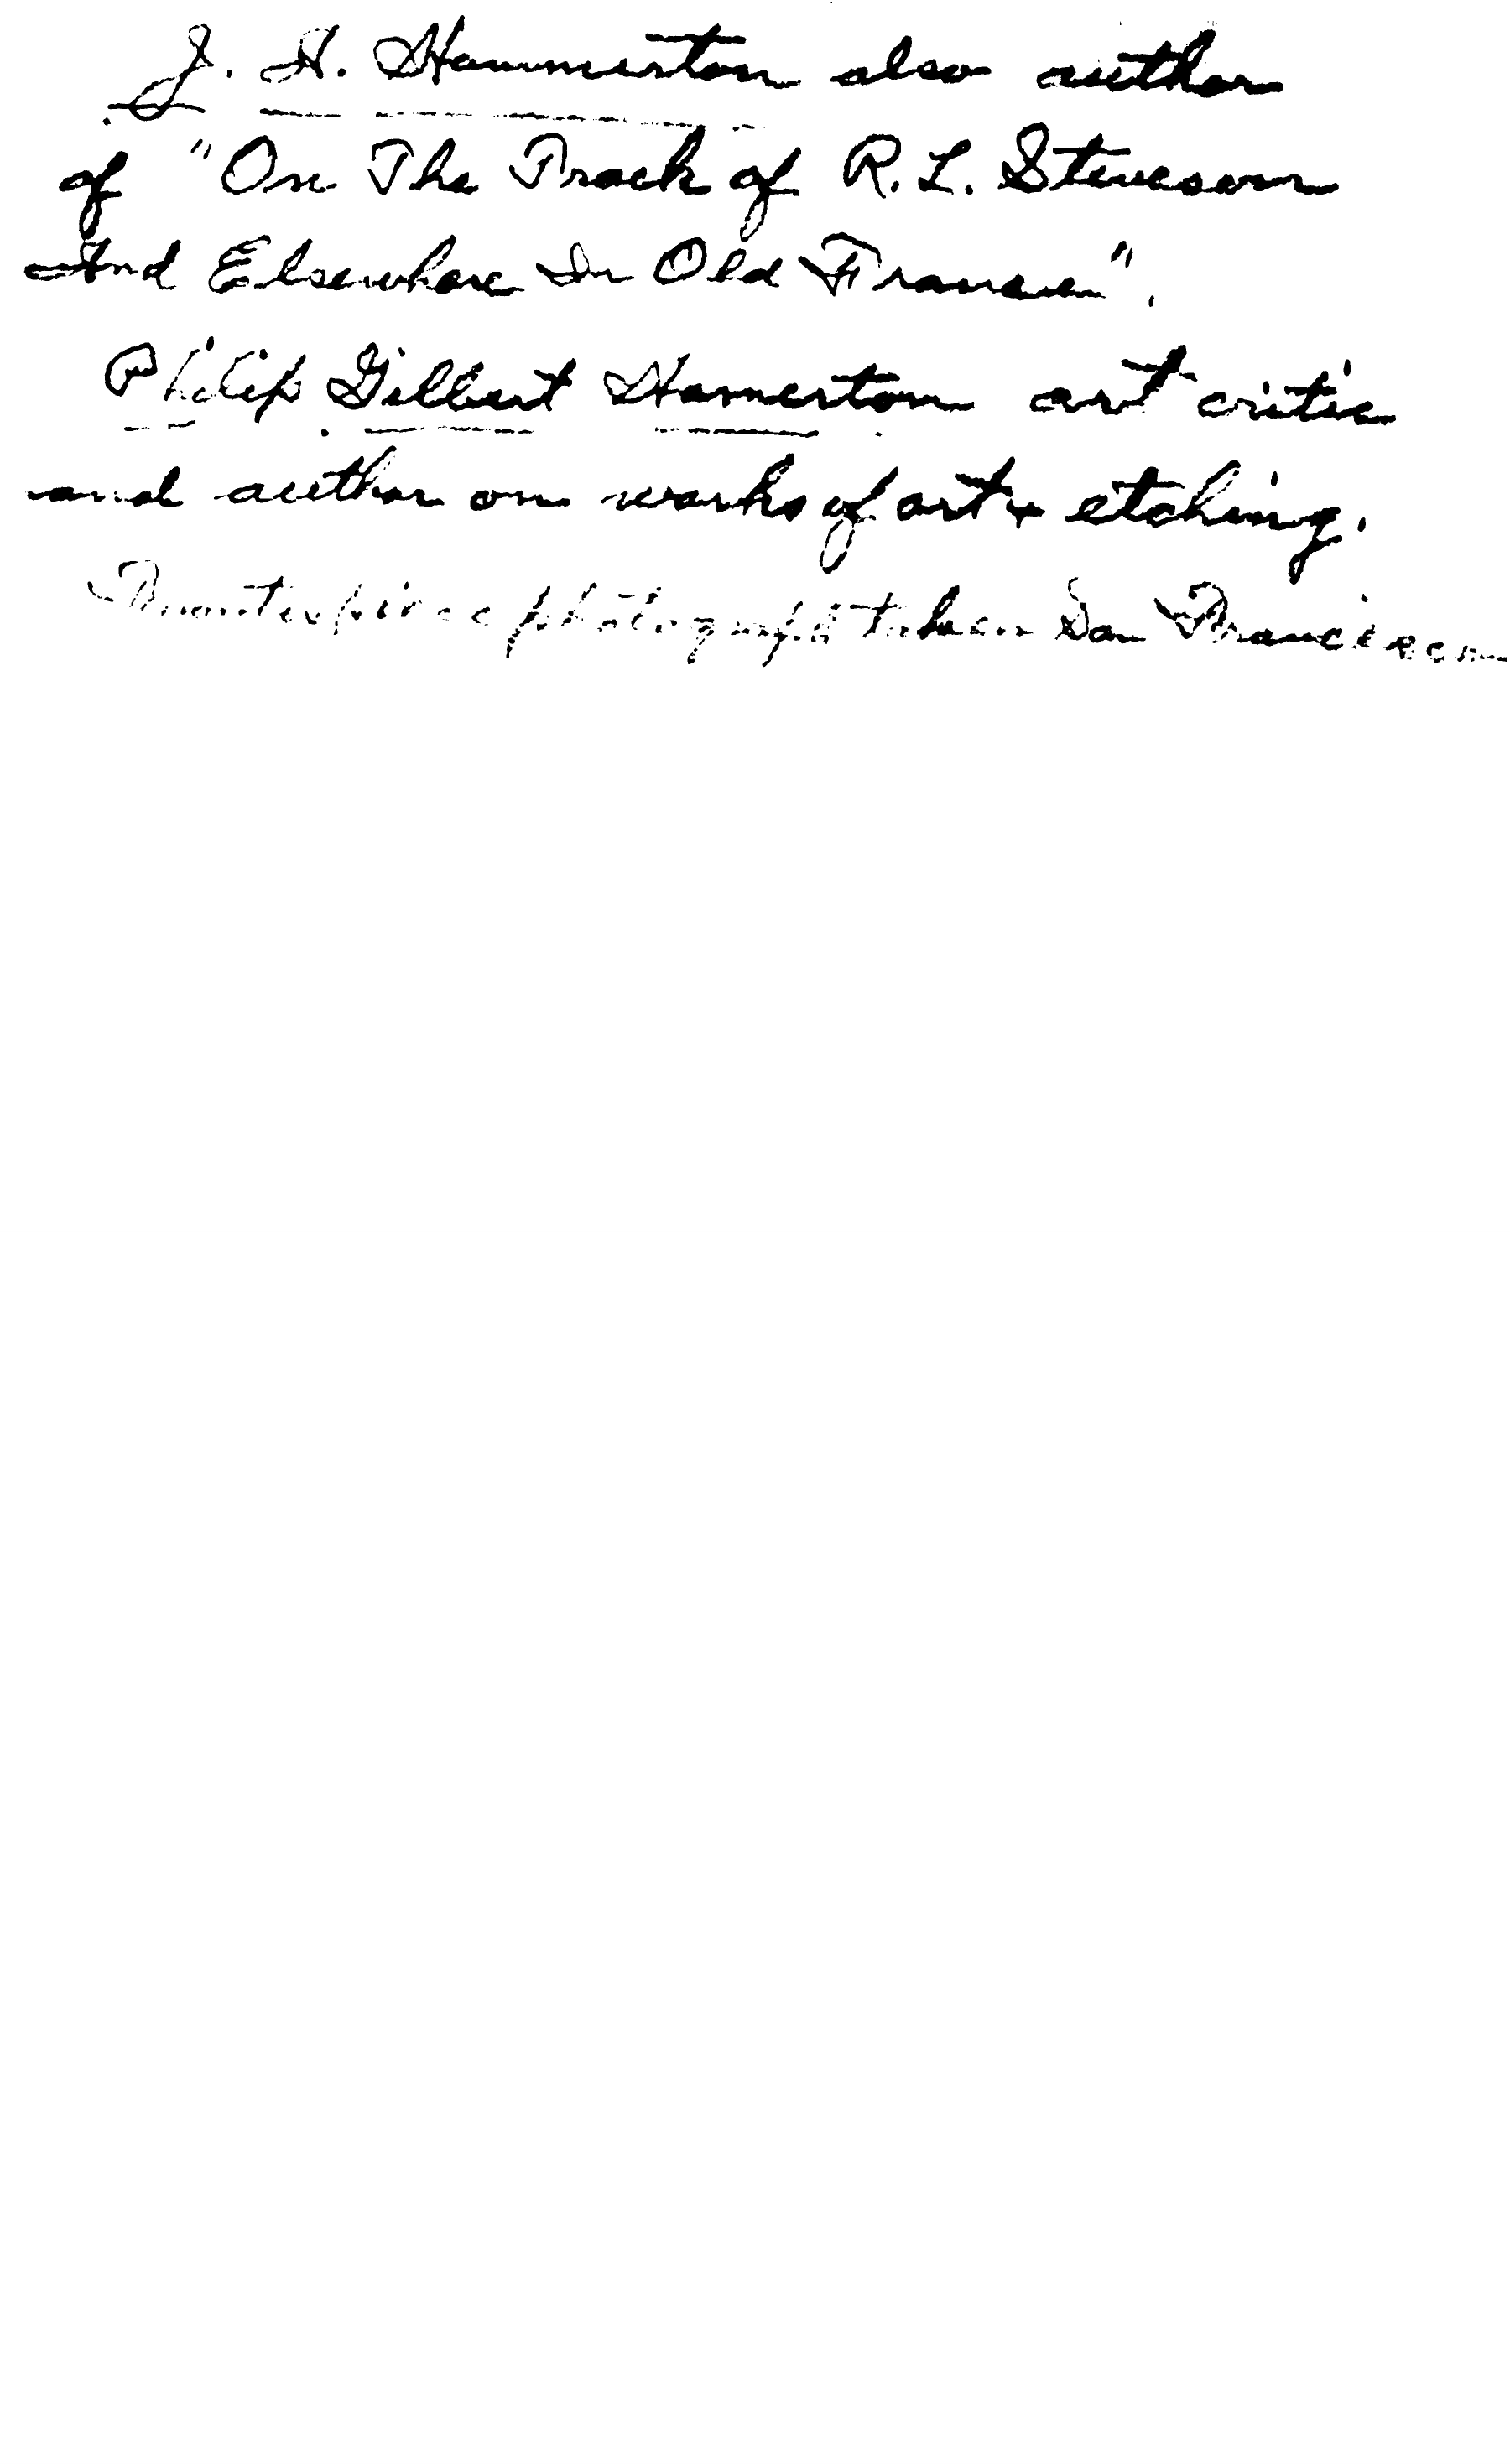 J. H. Hammerton also author
of "On The Track of R. L. Steveson
And Elsewhere In Old France".
Philip Gilbert Hamerton art critic
and author on works of art & etching.
Frontispiece photograph taken San Francisco